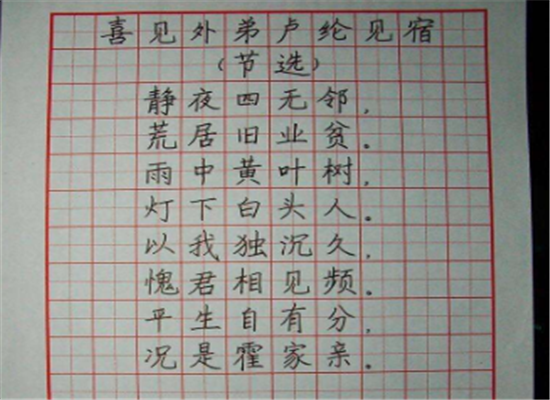 喜见外弟卢纶见宿
(节选)
静夜四无邻,
荒居旧业贫。
雨中黄叶树,
灯下白头人。
以我独沉久,
愧君相见频。
平生自有分,
况是霍家亲。